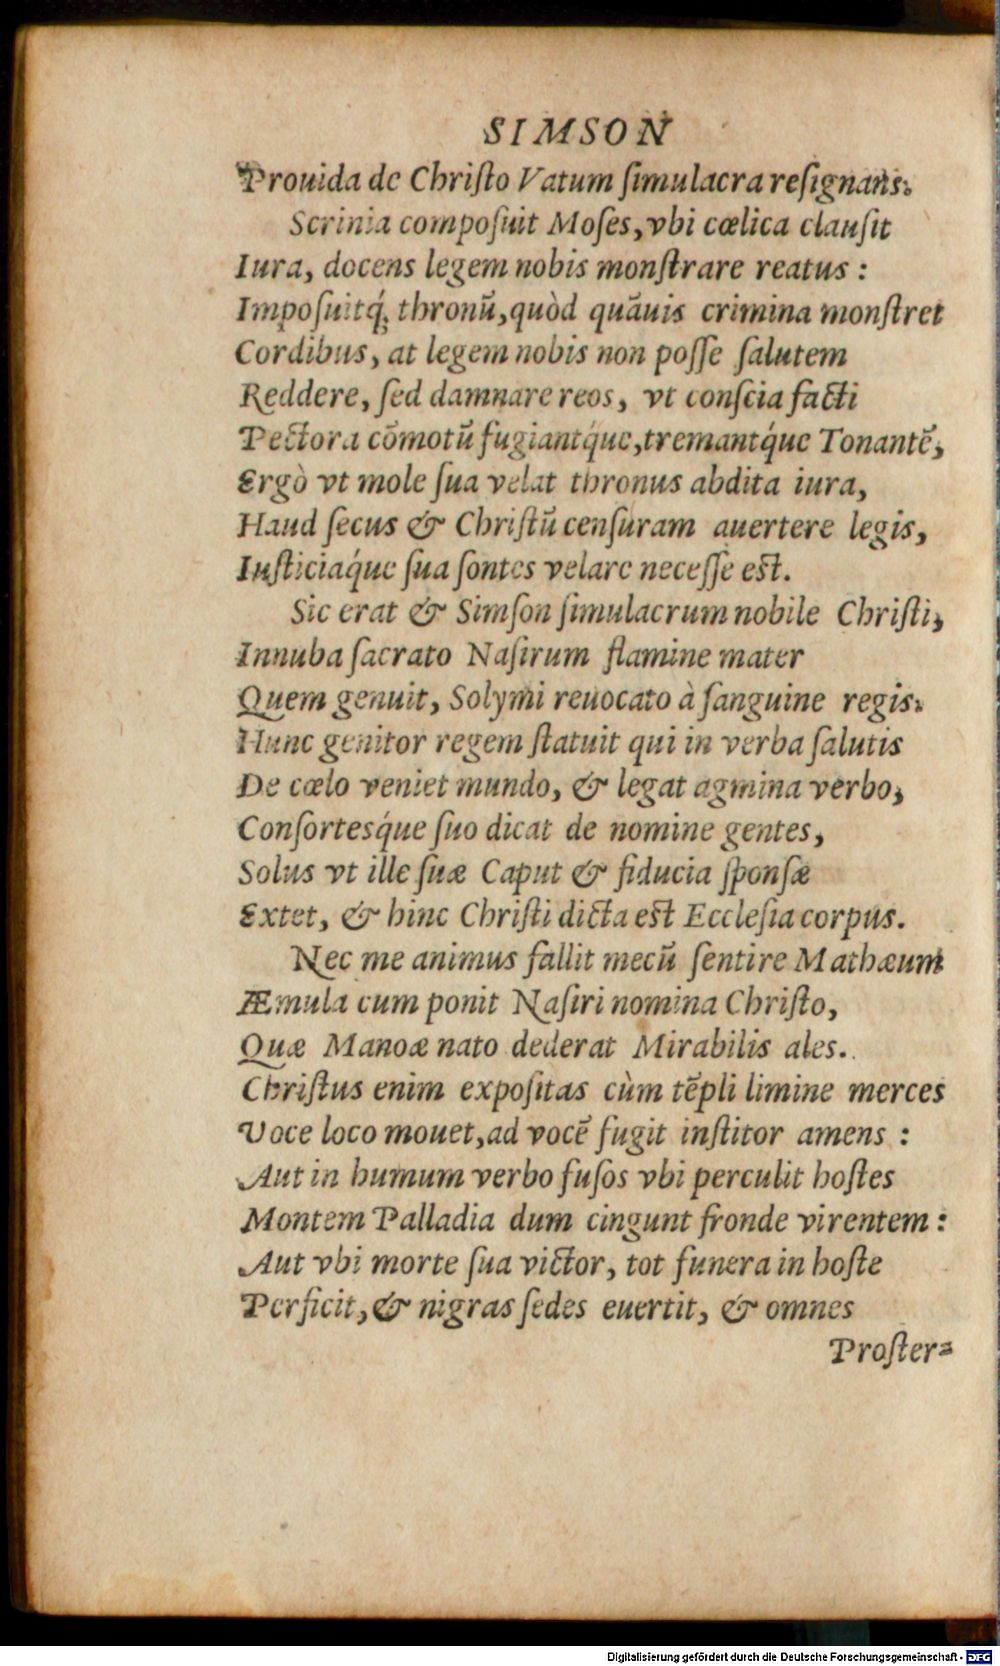 SIMSON
Prouida de Chriſto Vatum ſimulacra reſignans.
Scrinia compoſuit Moſes, vbi cœlica clauſit
Iura, docens legem nobis monſtrare reatus :
Impoſuitq́; thronũ, quòd quãuis crimina monſtret
Cordibus, at legem nobis non poſſe ſalutem
Reddere, ſed damnare reos, vt conſcia facti
Pectora cõmotũ fugiantq́ue, tremantq́ue Tonantẽ,
Ergò vt mole ſua velat thronus abdita iura,
Haud ſecus & Chriſtũ cenſuram auertere legis,
Iuſticiaq́ue ſua ſontes velare neceſſe est.
Sic erat & Simſon ſimulacrum nobile Chriſti,
Innuba ſacrato Naſirum flamine mater
Quem genuit, Solymi reuocato à ſanguine regis.
Hunc genitor regem ſtatuit qui in verba ſalutis
De cœlo veniet mundo, & legat agmina verbo,
Conſortesq́ue ſuo dicat de nomine gentes,
Solus vt ille ſuæ Caput & fiducia ſponſæ
Extet, & hinc Chriſti dicta est Eccleſia corpus.
Nec me animus fallit mecũ ſentire Mathæum
Æmula cum ponit Naſiri nomina Chriſto,
Quæ Manoæ nato dederat Mirabilis ales.
Chriſtus enim expoſitas cùm tẽpli limine merces
Voce loco mouet, ad vocẽ fugit inſtitor amens :
Aut in humum verbo fuſos vbi perculit hoſtes
Montem Palladia dum cingunt fronde virentem :
Aut vbi morte ſua victor, tot funera in hoſte
Perficit, & nigras ſedes euertit, & omnes
Proſter⸗
Digitalisierung gefördert durch die Deutsche Forschungsgemeinschaft - DFG